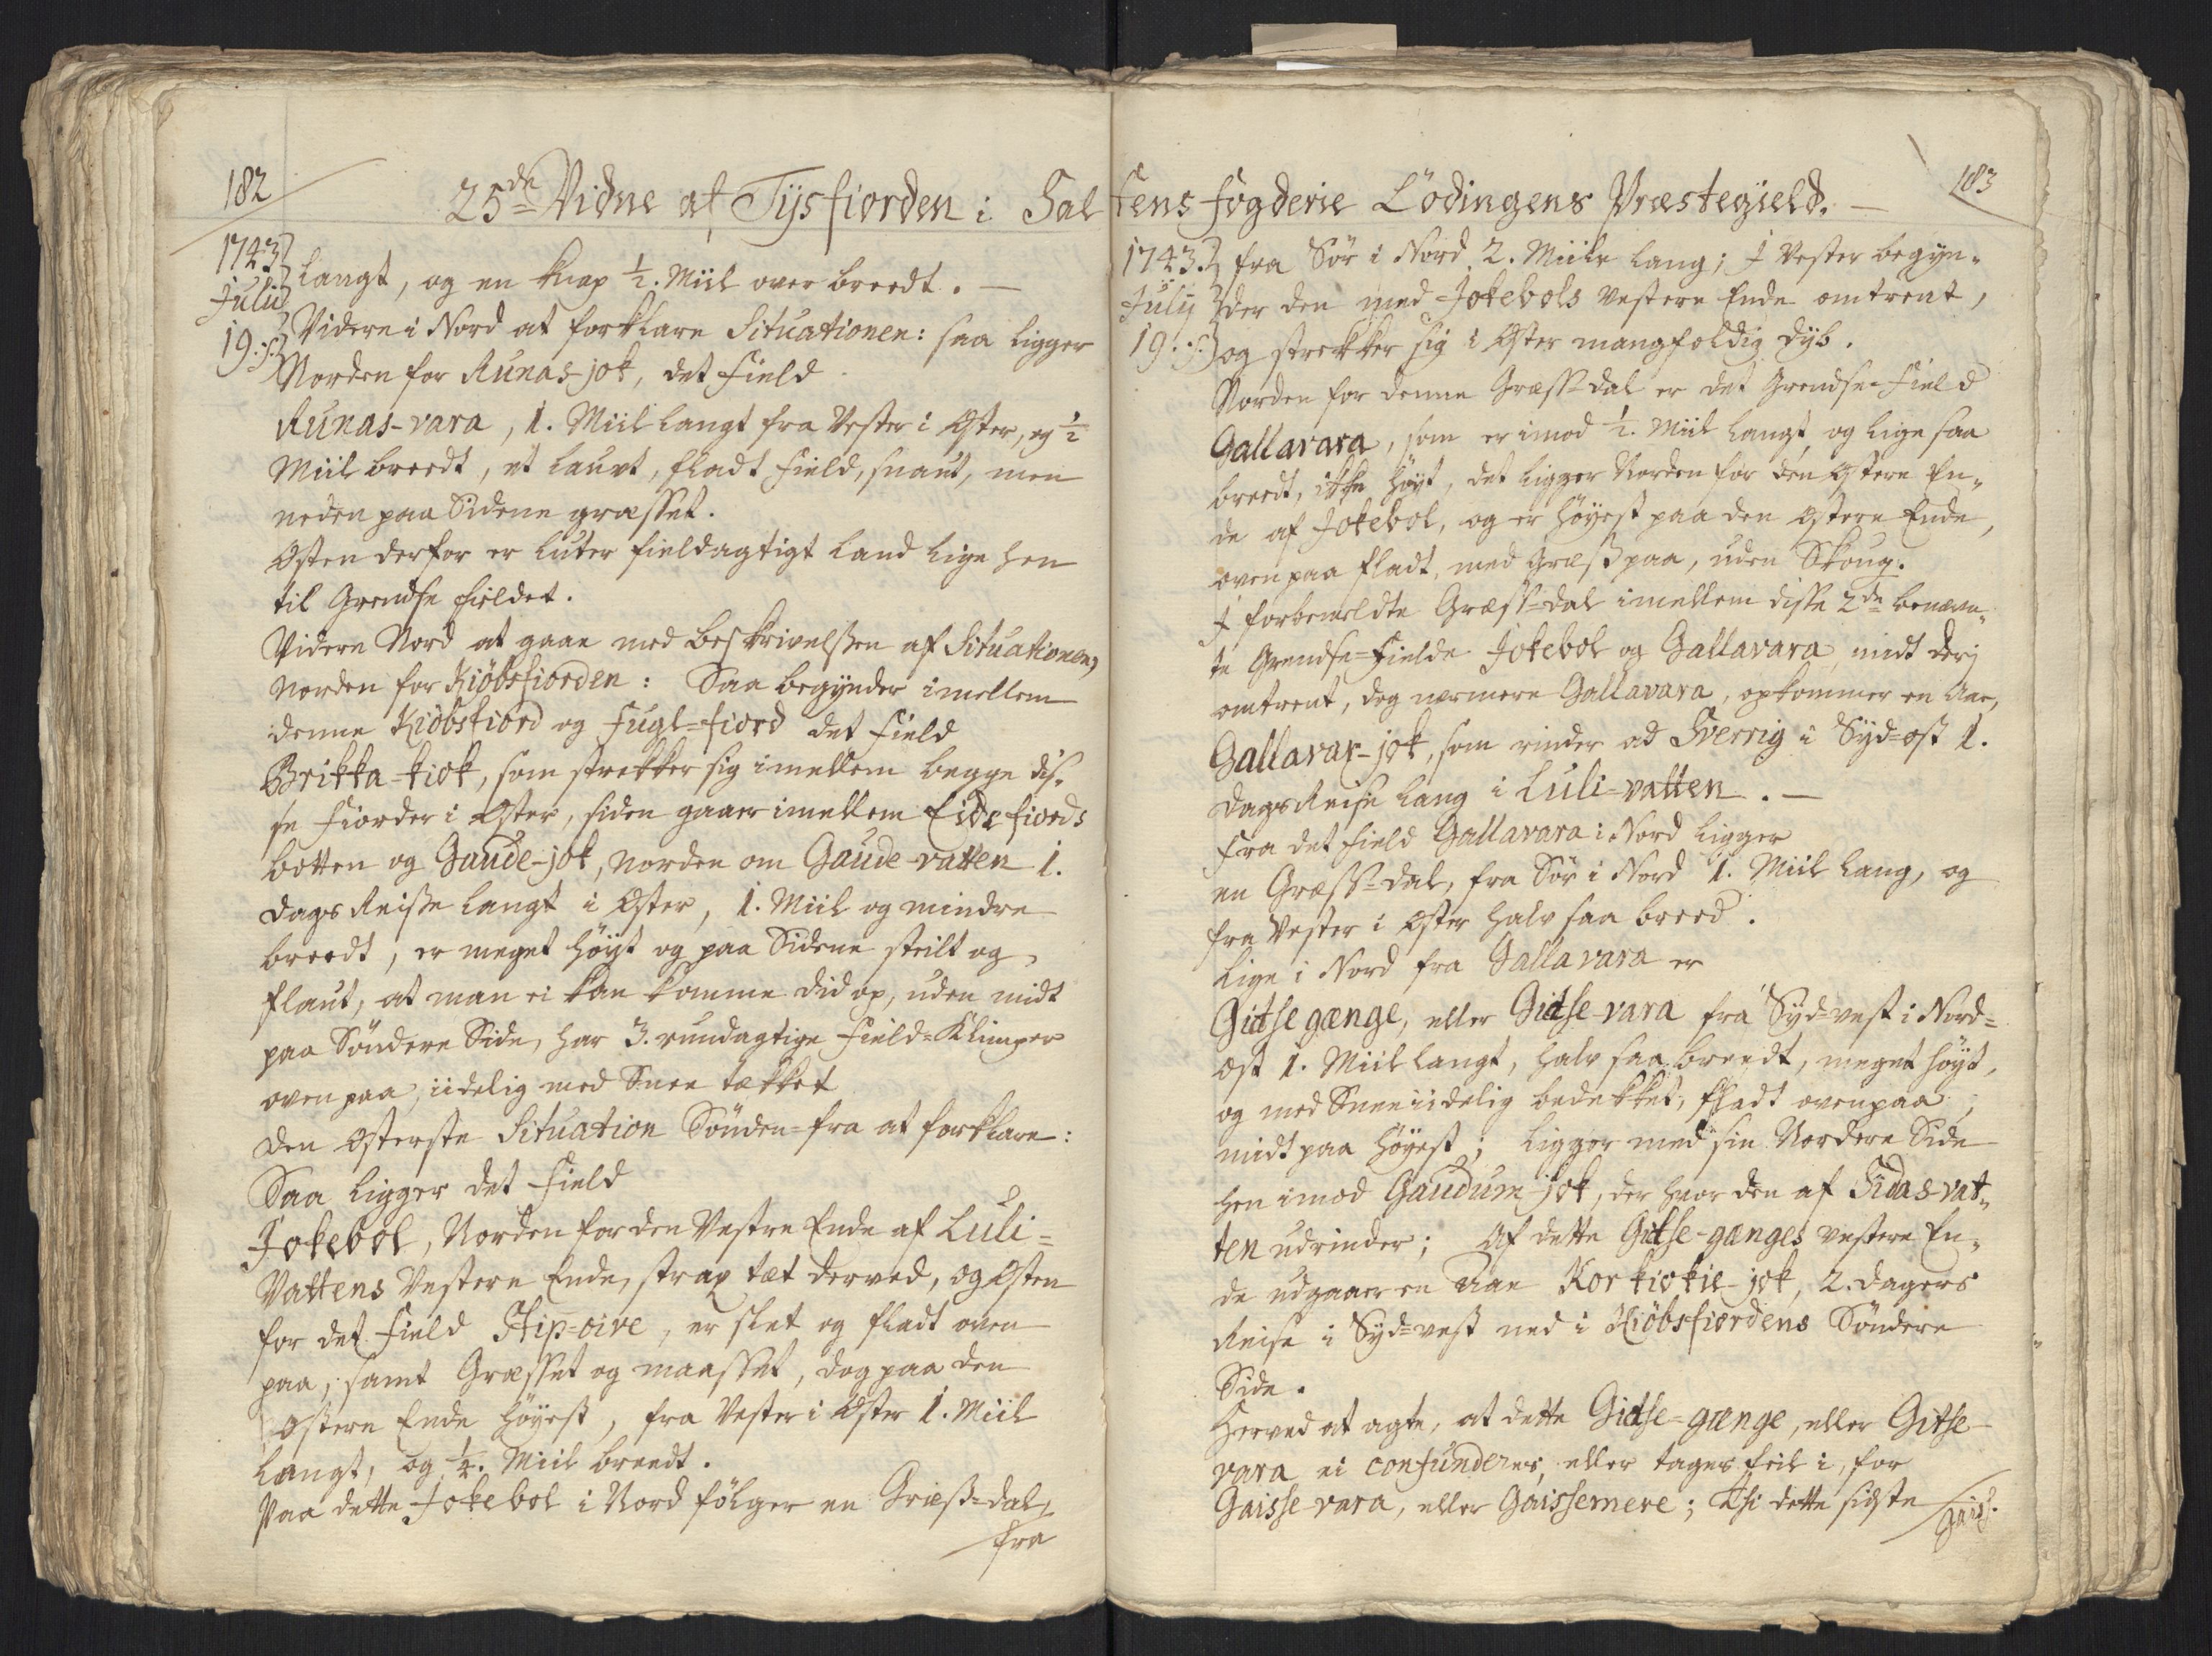 182
25de Vidne af Tÿsfiorden i Sal
1743
Julii
19.
langt, og en knap ½. Miil over breedt. —
Videre i Nord at forklare Situationen: saa ligger
Norden for Runas-jok, det Field
Runas-vara, 1. Miil langt fra Vester i Øster, og ½
Miil breedt, et laugt, fladt Field, snaut, men
neden paa Sidene græsset.
Østen derfor er luter fieldagtigt Land lige hen
til Grendse Fieldet.
Videre Nord at gaae med beskrivelssen af Situationen,
norden for Kiöbsfiorden: Saa begynder imellem
denne Kiöbsfiord og Fugl=fiord det Field
Brikka-kiok, som strekker sig imellem begge dis-
se Fiorder i Øster, siden gaaer imellem Eidefiords
botten og Gaude-jok, norden om Gaude-vatten 1.
dags Reisse langt i Øster, 1. Miil og mindre
breedt, er meget höyt og paa Sidene steilt og
flaut, at man ei kan komme did op, uden midt
paa Söndere Side, har 3. rundagtige Field=Klimper
oven paa, iidelig med Snee tækket
Den Østerste Situation Sönden=fra at forklare:
Saa ligger det Field
Jokebol, Norden for den Vestre Ende af Luli=
Vattens Vestere Ende, strax tæt derved, og Østen
for det Field Hip=oive, er slet og fladt oven
paa, samt Græsset og maasset, dog paa den
Østere Ende Höyest, fra Vester i Øster 1. Miil
langt, og ¼. Miil breedt.
Paa dette Jokebol i Nord fölger en Græss=dal,
fra
183
tens Fogderie Lödingens Præstegield. —
1743.
Julÿ
19.
fra Sör i Nord 2. Miile lang; I Vester begyn-
der den med Jokebols Vestere Ende omtrent,
og strekker sig i Øster mangfoldig dÿb.
Norden for denne Græss=dal er det Grendse=Field
Gallavara, som er imod ½. Miil langt og lige saa
breedt, ikke höyt, det ligger Norden for den Østere En-
de af Jokebol, og er höyest paa den Østere Ende,
oven paa fladt, med Græss paa, uden Skoug.
I forbemeldte Græss=dal imellem disse 2de benævn-
te Grendse=Fielde Jokebol og Gallavara, midt derj
omtrent, dog nærmere Gallavara, opkommer en Aae,
Gallavar-jok, som rinder ad Sverrig i Syd=ost 1.
dags Reise lang i Luli=vatten. —
Fra det Field Gallavara i Nord ligger
en Græss=dal, fra Sör i Nord 1. Miil lang, og
fra Vester i Øster halv saa breed.
Lige i Nord fra Gallavara er
Gidtse gænge, eller Gidtse-vara fra Syd=vest i Nord=
ost 1. Miil langt, halv saa breedt, meget höyt,
og med Snee iidelig bedekket, fladt ovenpaa,
midt paa höyest; ligger med sin Nordere Side
hen imod Gaudum-jok, der hvor den af Sidasvat-
ten udrinder; Af dette Gidtse-gænges Vestere En-
de udgaaer en Aae Kor kiokie-jok, 2. dagers
Reise i Syd=vest ned i Kiöbsfiordens Söndere
Side.
Herved at agte, at dette Gidtse=gænge, eller Gitse-
vara ei confunderes, eller tages feil i, for
Gaisse vara, eller Gaissemere; Thi dette sidste
Gaisse